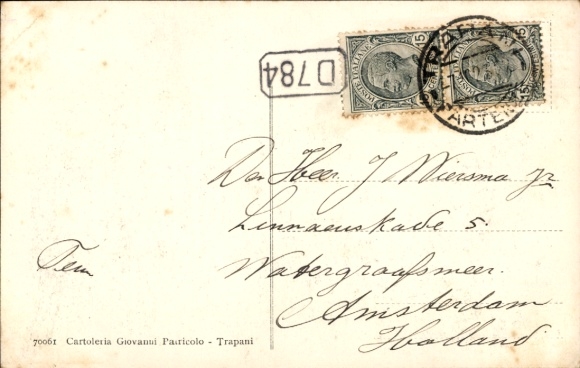 D784
POSTE ITALIANE
15
15
TRAPANI
Den Heer J Wiersma jr
Linnaeuskade 5.
Watergraafsmeer.
Amsterdam
Holland
70061 Cartoleria Giovanni Patricolo - Trapani